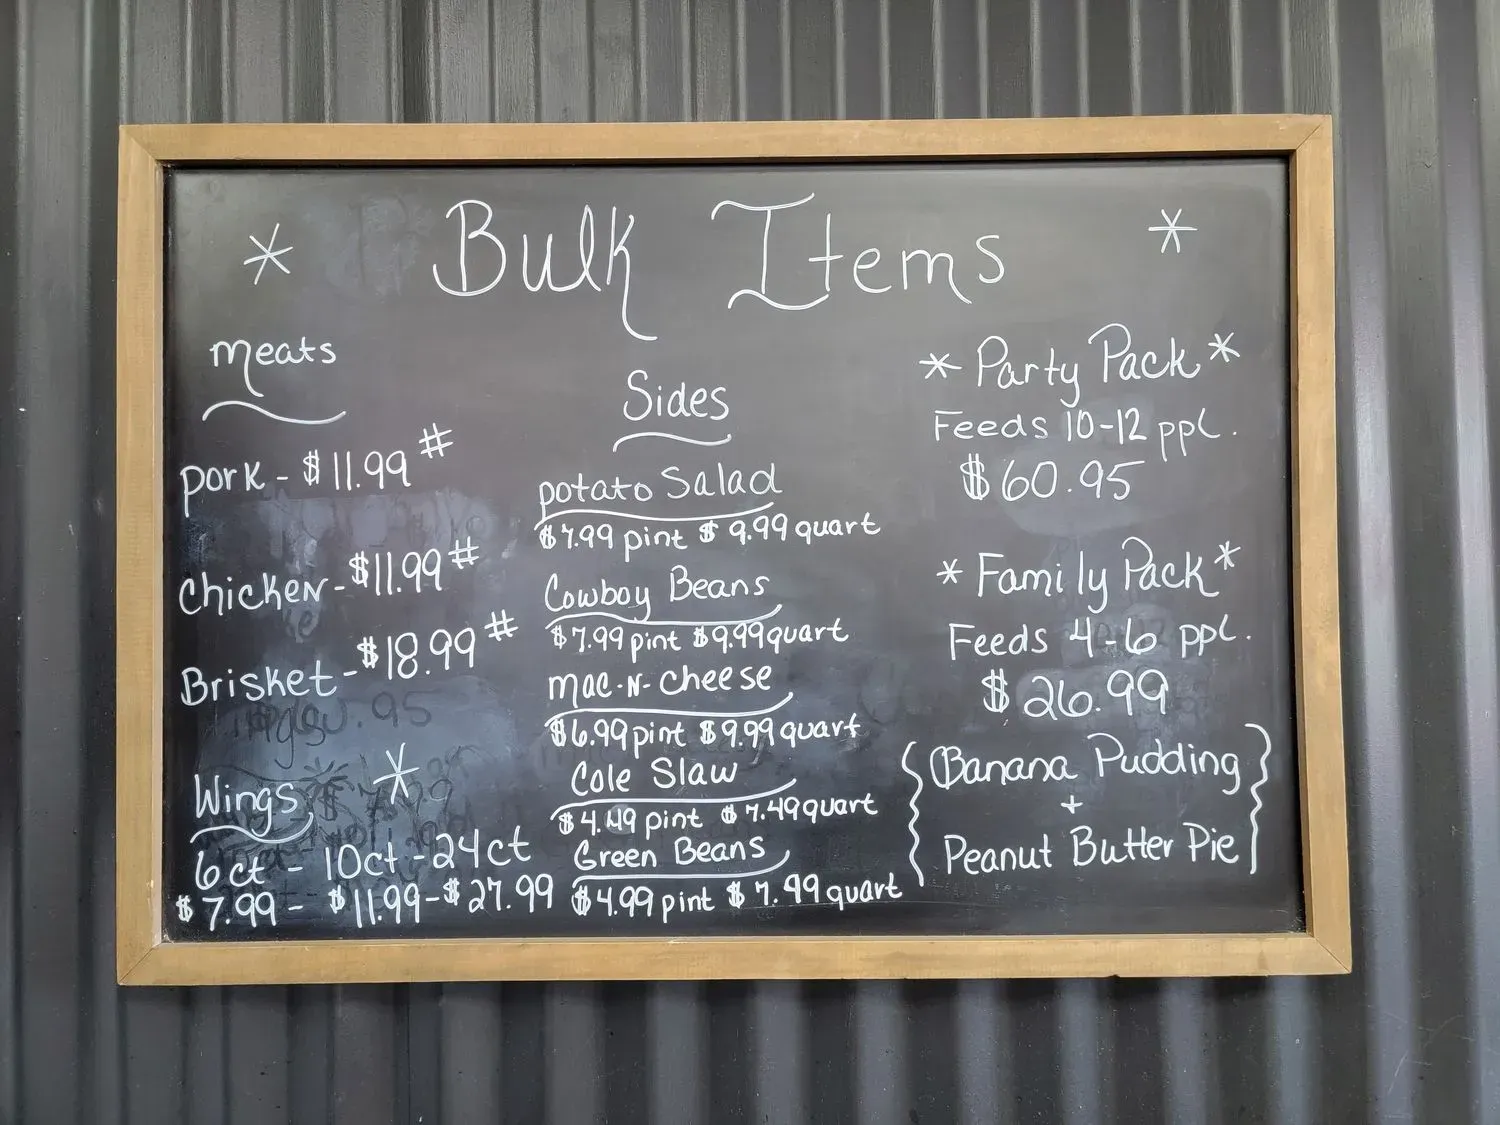 * Bulk Items *
Meats
Pork - $11.99 #
Chicken - $11.99 #
Brisket - $18.99 #
Wings *
6ct - 10ct - 24ct
$7.99 - $11.99 - $27.99
Sides
Potato Salad
$7.99 pint $9.99 quart
Cowboy Beans
$7.99 pint $9.99 quart
Mac-N-Cheese
$6.99 pint $9.99 quart
Cole Slaw
$4.49 pint $7.49 quart
Green Beans
$4.99 pint $7.99 quart
* Party Pack *
Feeds 10-12 ppl.
$60.95
* Family Pack *
Feeds 4-6 ppl.
$26.99
{Banana Pudding
+
Peanut Butter Pie}